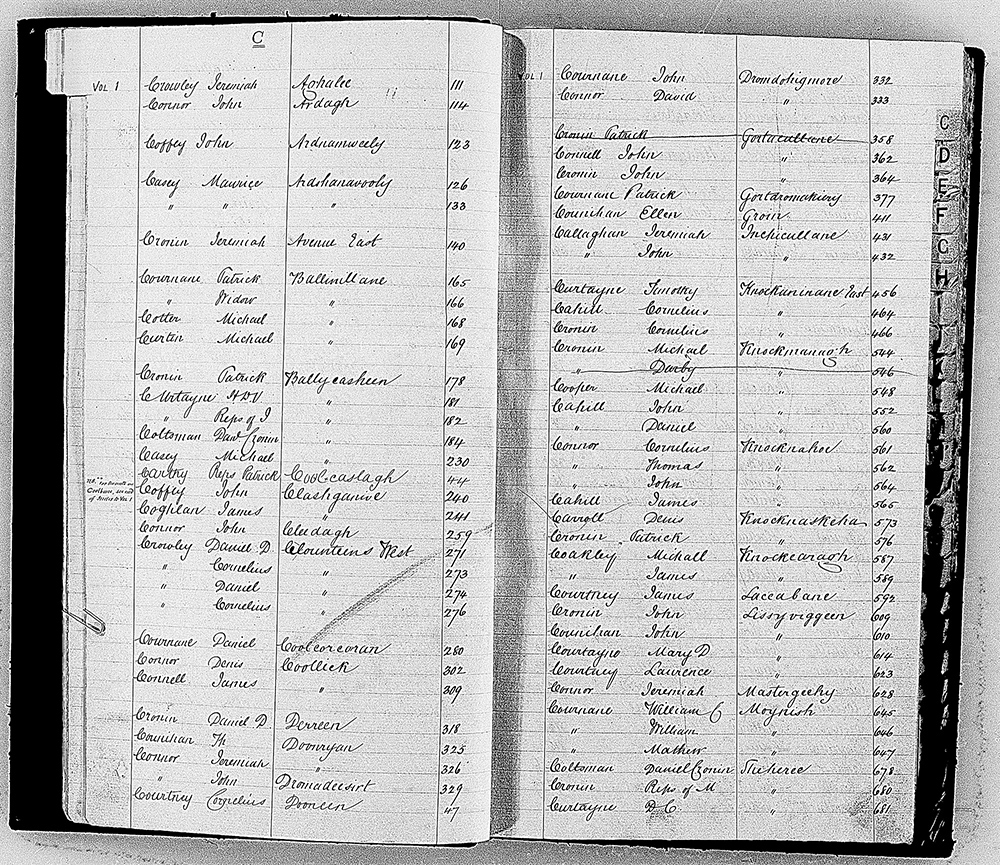 C
VOL 1 Crowley Jeremiah Aghalee 111
Connor John Ardagh 114
Coffey John Ardnamweely 123
Casey Maurice Ardshanavooly 126
" " " 133
Cronin Jeremiah Avenue East 140
Cournane Patrick Ballinillane 165
" Widow " 166
Cotter Michael " 168
Curtin Michael " 169
Cronin Patrick Ballycasheen 178
Curtayne HDV " 181
" Reps of J " 182
Coltsman Danl Cronin " 184
Casey Michael " 230
Carthy Reps Patrick Coolcaslagh 44
Coffey John Clashganive 240
Coghlan James " 241
Connor John Cleedagh 259
Crowley Daniel D. Clounteens West 271
" Cornelius " 273
" Daniel " 274
" Cornelius " 276
Cournane Daniel Coolcorcoran 280
Connor Denis Coollick 302
Connell James " 309
Cronin Daniel D. Derreen 318
Counihan Th Doonryan 325
Connor Jeremiah " 326
" John Dromadeesirt 329
Courtney Cornelius Dooneen 47
VOL 1 Cournane John Dromdohigmore 332
Connor David " 333
Cronin Patrick Gortacullane 358
Connell John " 362
Cronin John " 364
Cournane Patrick Gortaromakiery 377
Counihan Ellen Groin 411
Callaghan Jeremiah Inchicullane 431
" John " 432
Curtayne Timothy Knockaninane East 456
Cahill Cornelius " 464
Cronin Cornelius " 466
Cronin Michael Knockmanagh 544
" Darby " 546
Cooper Michael " 548
Cahill John " 552
" Daniel " 560
Connor Cornelius Knocknahoe 561
" Thomas " 562
" John " 564
Cahill James " 565
Carroll Denis Knocknaskeha 573
Cronin Patrick " 576
Coakley Michall Knockearagh 587
" James " 589
Courtney James Laccabane 592
Cronin John Lissyviggeen 609
Counihan John " 610
Courtayne Mary D " 614
Courtney Laurence " 623
Connor Jeremiah Mastergeehy 628
Cournane William C Moynish 645
" William " 646
" Mathew " 647
Coltsman Daniel Cronin Sheheree 678
Cronin Reps of M " 680
Curtayne D C " 681
C
D
E
F
G
H
I